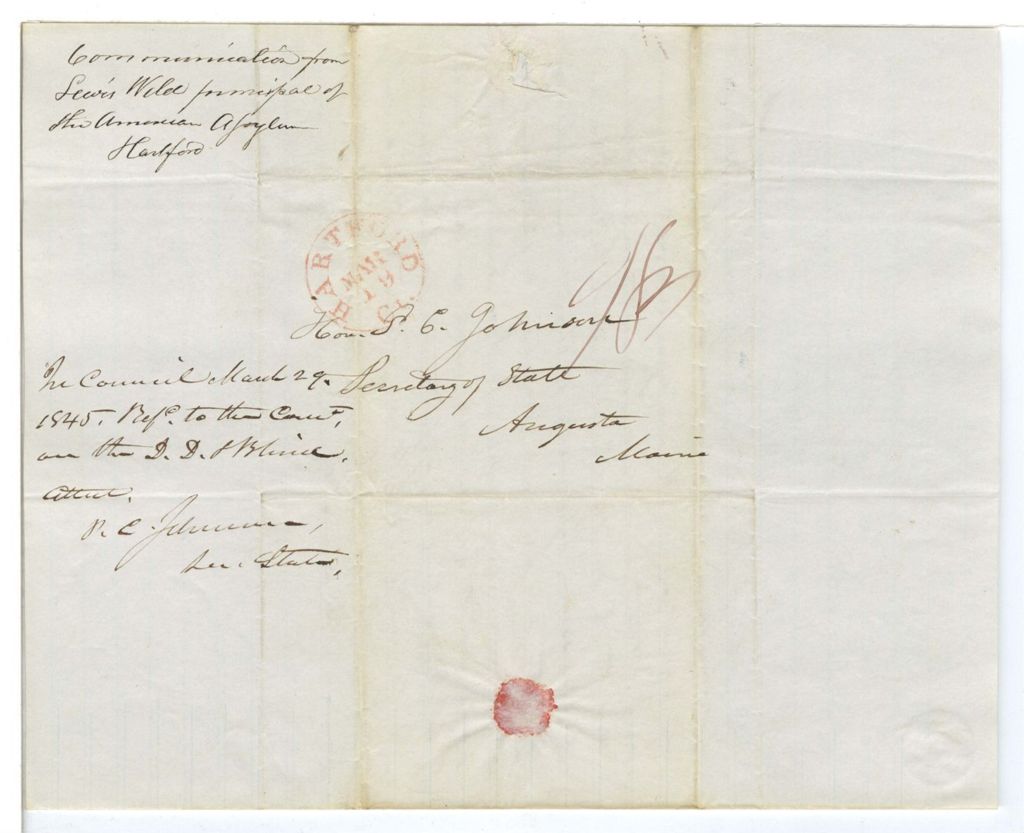 Communication from
Lewis Weld principal of
the American Asylum
Hartford
HARTFORD
MAR
19
Ct.
Hon. P. C. Johnson
Secretary of State
Augusta
Maine
In Council March 29.
1845. Refd. to the Comt.
on the D. D. & Blind.
Attest.
P. C. Johnson,
Sec. State,